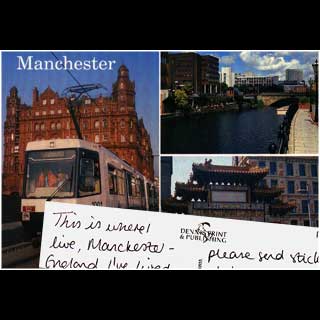 Manchester
1001
This is where I
live, Manchester -
England I've lived
DENNIS PRINT
& PUBLISHING
please send stick